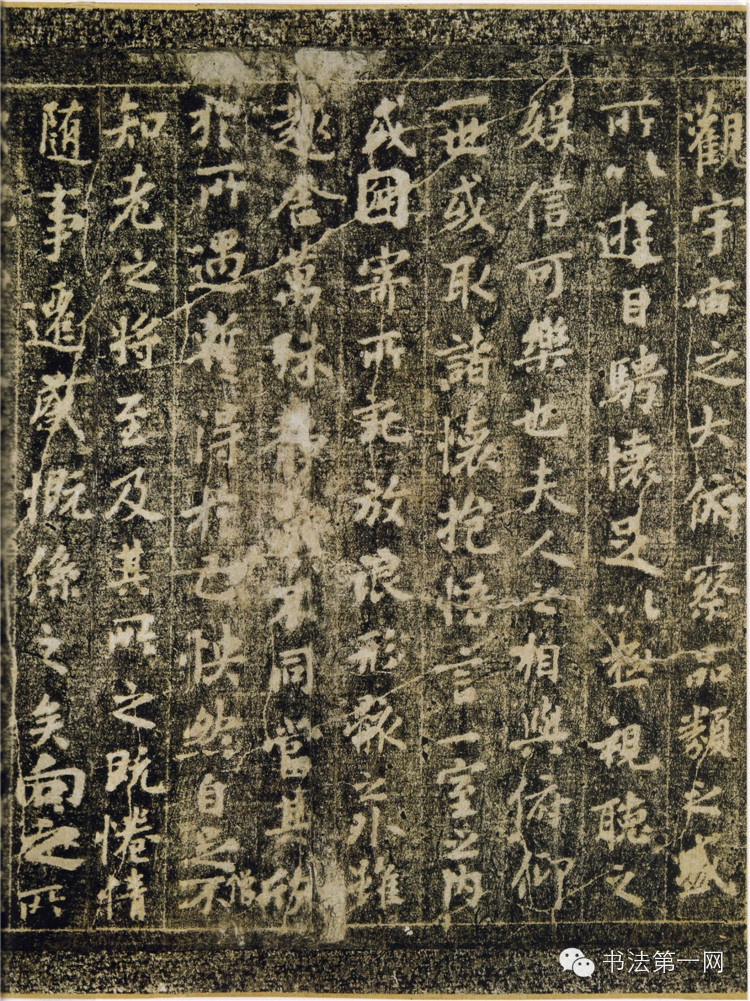 觀宇宙之大俯察品類之盛
所以遊目騁懷足以極視聽之
娛信可樂也夫人之相與俯仰
一世或取諸懷抱悟言一室之內
或因寄所託放浪形骸之外雖
趣舍萬殊靜躁不同當其欣
於所遇暫得於己快然自足不
僧
知老之將至及其所之既惓情
隨事遷感慨係之矣向之所
书法第一网